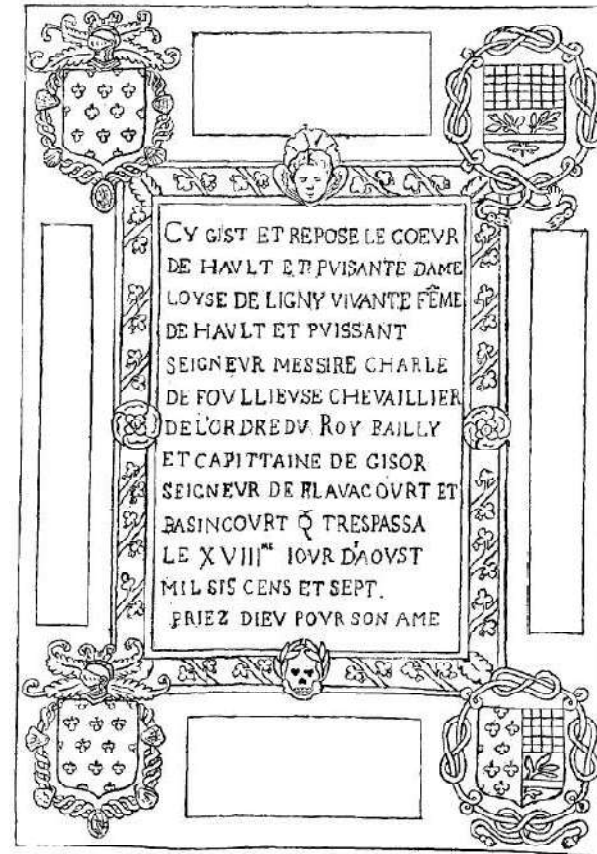 CY GIST ET REPOSE LE COEVR
DE HAVLT ET PVISANTE DAME
LOYSE DE LIGNY VIVANTE FÊME
DE HAVLT ET PVISSANT
SEIGNEVR MESSIRE CHARLE
DE FOVLLIEVSE CHEVAILLIER
DE L'ORDRE DV ROY BAILLY
ET CAPITTAINE DE GISOR
SEIGNEVR DE FLAVACOVRT ET
BASINCOVRT Q̃ TRESPASSA
LE XVIIIᴹᴱ IOVR D'AOVST
MIL SIS CENS ET SEPT.
PRIEZ DIEV POVR SON AME